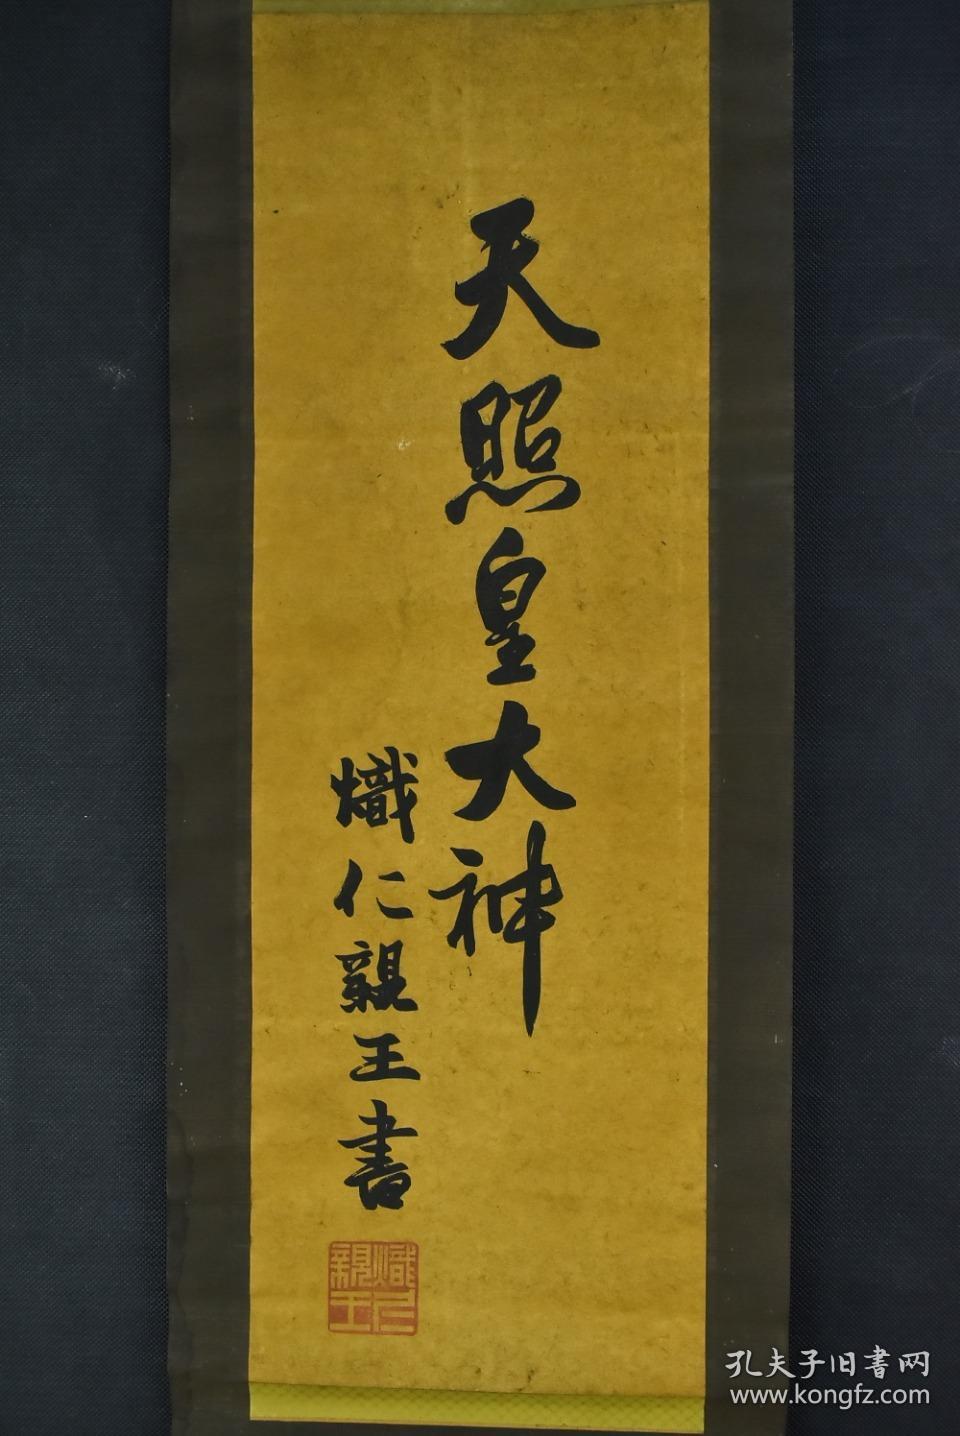 天照皇大神
熾仁親王書
熾仁親王
孔夫子旧書网
www.kongfz.com